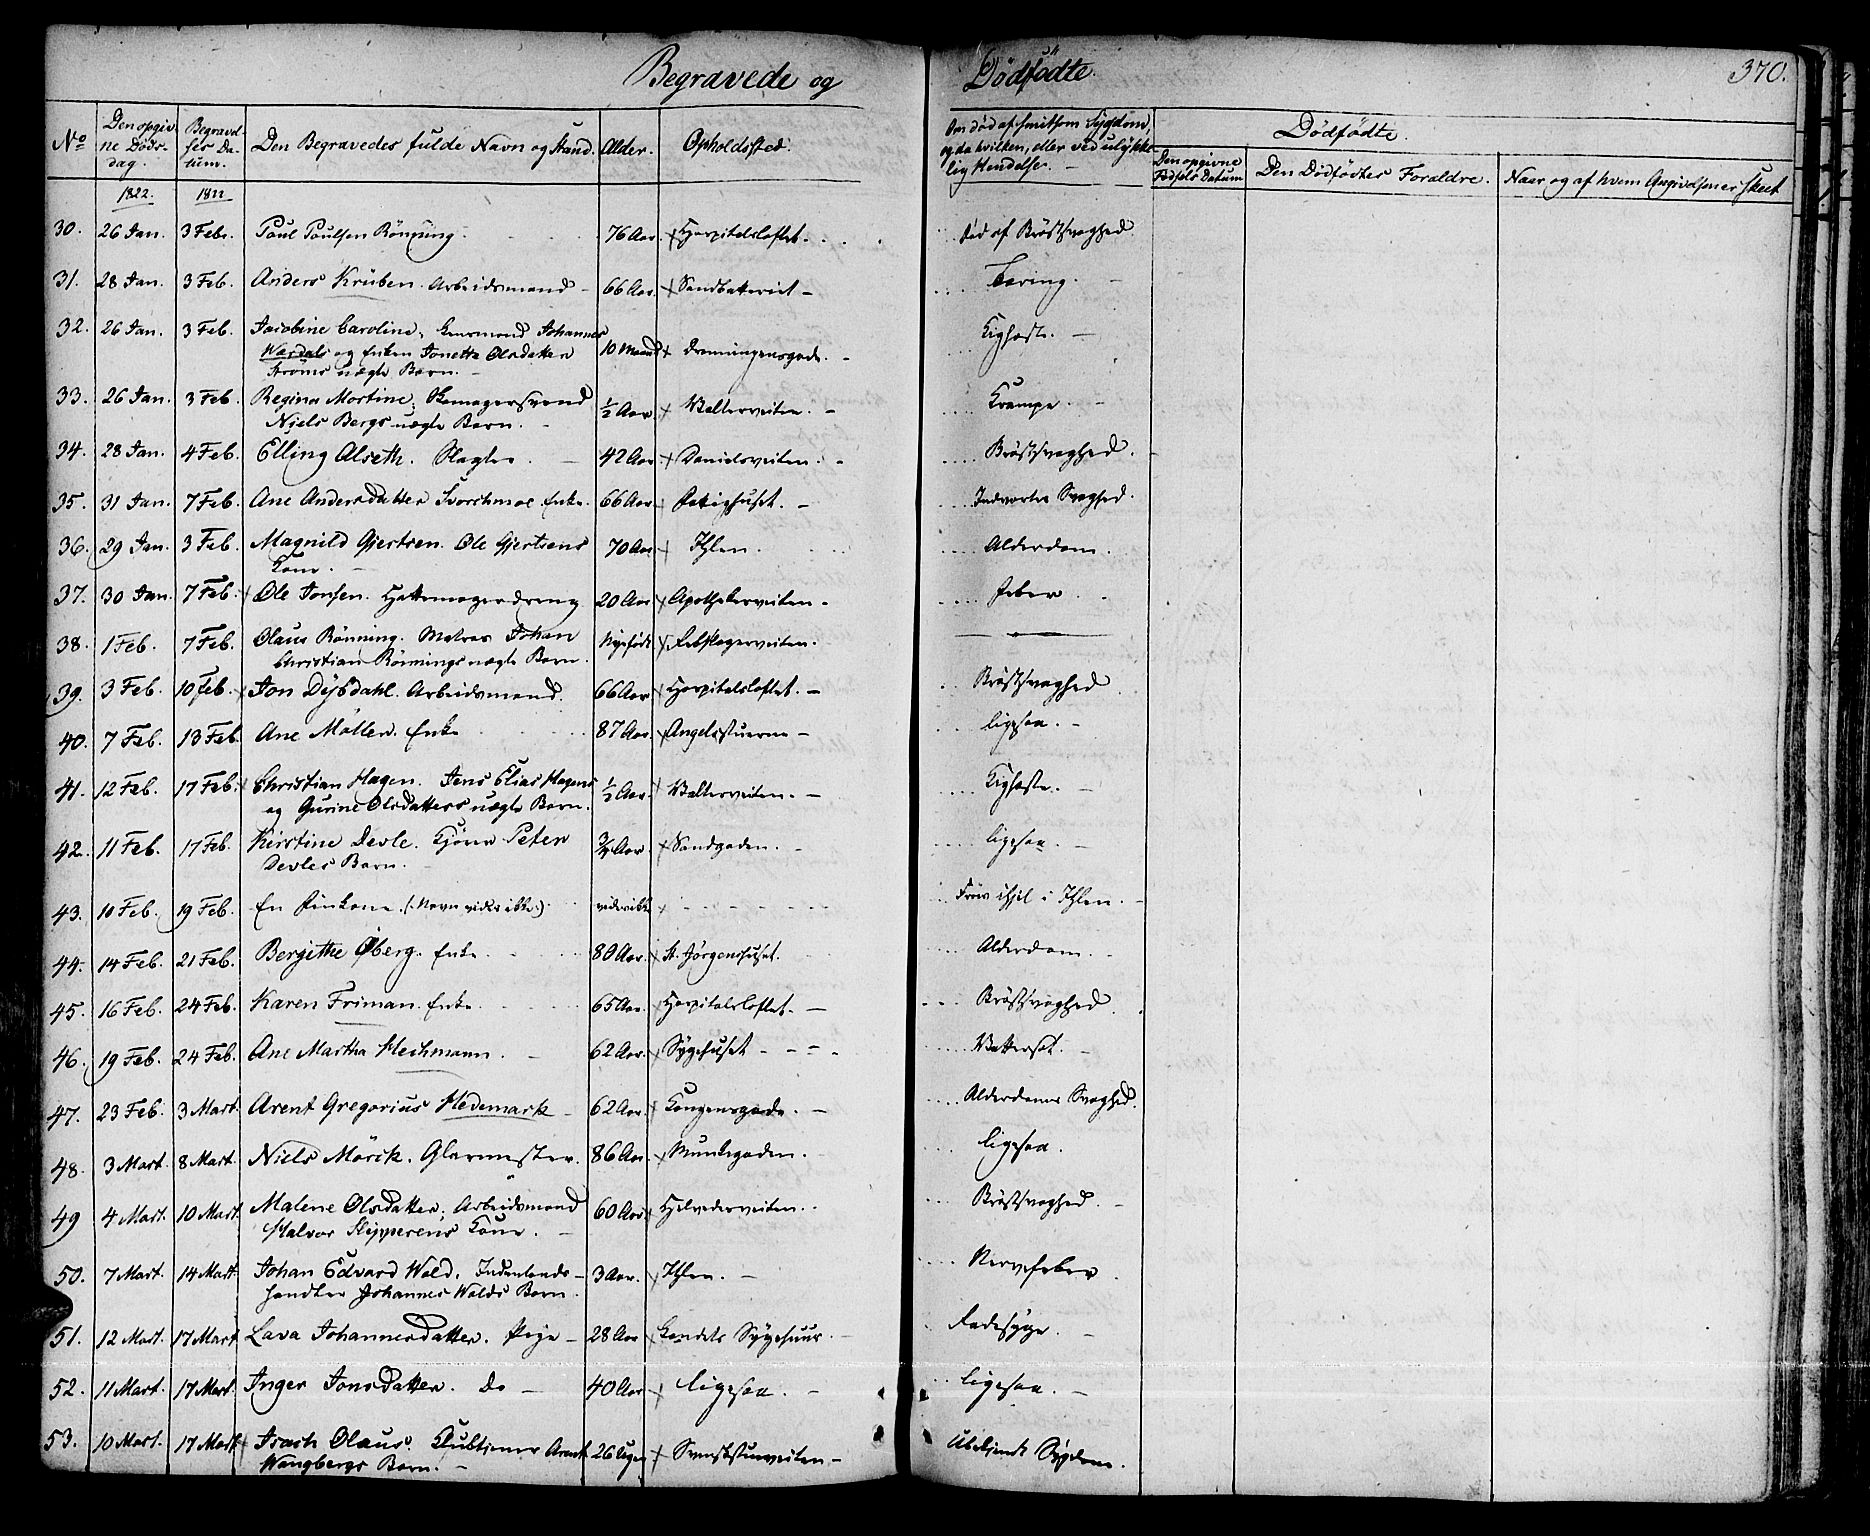 Begravede og Dødfødte. 370.
No Den opgivne Døds-dag. Begravelses Datum. Den Begravedes fulde Navn og Stand. Alder. Opholdsted. Om død af smitsom Sygdom, og da hvilken, eller ved ulykkelig Hendelse. Dødfødte.
Den opgivne Fødsels Datum Den Dødfødtes Forældre. Naar og af hvem Angivelsen er skeet
1822. 1822
30. 26 Jan. 3 Febr. Poul Poulsen Rönning. 76 Aar. Hospitalsloftet. død af Bröstsvaghed.
31. 28 Jan. 3 Feb. Anders Krüben. Arbeidsmand 66 Aar. Sandbatteriet Tæring.
32. 26 Jan. 3 Feb. Jacobine Caroline, Johannes
Wardals og Enken Jonetta Olsdatter 10 Maan. Dronningensgade. Kighoste.
Ströms uægte Barn.
33. 26 Jan. 3 Feb. Regina Martine, Skomagersvend
Niels Bergs uægte Barn. ½ Aar Walterveiten. Krampe.
34. 28 Jan. 4 Feb. Elling Alseth. Slagter. 42 Aar Danielsveiten. Bröstsvaghed.
35. 31 Jan. 7 Feb. Ane Andersdatter Svorchmoe Enke. 66 Aar. Fattighuset. Indvortes Svaghed.
36. 29 Jan. 3 Feb. Magnild Gjertsen. Ole Gjertsens
Kone. 70 Aar Ihlen. Alderdom.
37. 30 Jan. 7 Feb. Ole Jonsen. Hattemagerdreng 20 Aar Apothekerveiten. Feber.
38. 1 Feb. 7 Feb. Olaus Rönning. Matros Johan
Christian Rönnings uægte Barn. Nyefödt Rebslagerveiten.
39. 3 Feb. 10 Feb. Jon Dybdahl. Arbeidsmand. 66 Aar Hospitalsloftet. Bröstsvaghed
40. 7 Feb. 13 Feb. Ane Möller. Enke 87 Aar. Angelsstuerne ligesaa.
41. 12 Feb. 17 Feb. Christian Hagen. Jens Elias Hagens
og Gurine Olsdatters uægte Barn. ½ Aar. Walterveiten. Kighoste.
42. 11 Feb. 17 Feb. Kirstine Devle. Peter
Devles Barn. ¾ Aar Sandgaden. ligesaa.
43. 10 Feb. 19 Feb. En Finkone. (Navn vides ikke.) vides ikke Frøs ihjel i Ihlen.
44. 14 Feb. 21 Feb. Bergithe Öberg. Enke. 80 Aar. St. Jörgenshuset. Alderdom.
45. 16 Feb. 24 Feb. Karen Friman. Enke. 65 Aar. Hospitalsloftet. Bröstsvaghed
46. 19 Feb. 24 Feb. Ane Martha Hechmann. 62 Aar. Sygehuset Wattersot.
47. 23 Feb. 3 Mart. Arent Gregorius Hedemark 62 Aar. Kongensgade. Alderdoms Svaghed.
48. 3 Mart. 8 Mart. Niels Mörck. Glarmester. 86 Aar. Munkegaden. ligesaa.
49 4 Mart. 10 Mart. Malene Olsdatter, Arbeidsmand
Halvor Skipperens Kone. 60 Aar Helvedesveiten. Bröstsvaghed.
50. 7 Mart. 14 Mart. Johan Edvard Wold. Indenlands-
handler Johannes Wolds Barn. 3 Aar. Ihlen. Nervefeber.
51. 12 Mart. 17 Mart Lava Johannesdatter. Pige 28 Aar Landets Sygehuus. Radesyge.
52. 11 Mart. 17 Mart. Inger Jonsdatter. Do 40 Aar ligesaa. ligesaa.
53. 10 Mart. 17 Mart Isach Olaus. Arent
Wangbergs Barn. 26 Uger Svenskstueveiten Ubekjendt Sygdom.